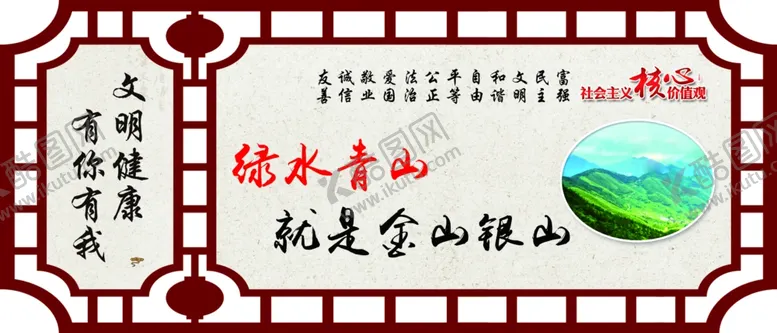 文明健康
有你有我
富强
民主
文明
和谐
自由
平等
公正
法治
爱国
敬业
诚信
友善
社会主义核心价值观
绿水青山
就是金山银山
酷图网
www.ikutu.com